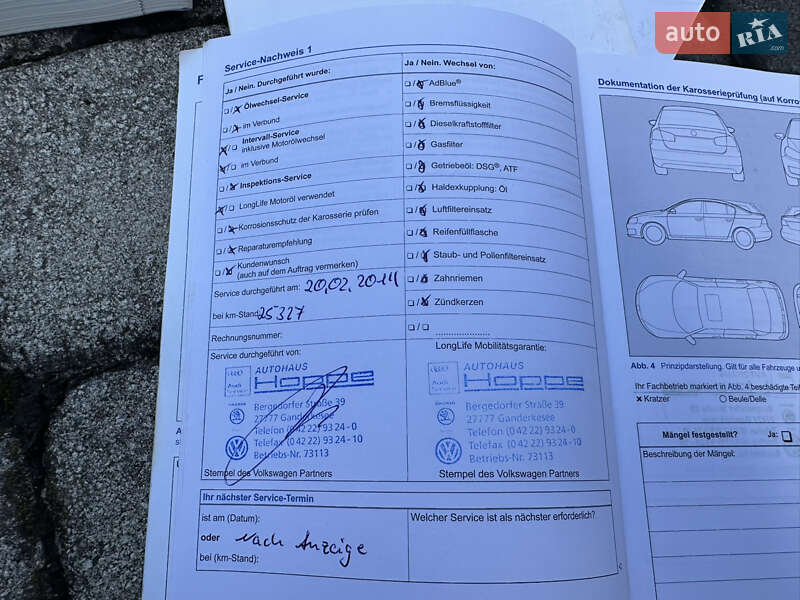 auto RIA.com
Service-Nachweis 1
Ja / Nein. Durchgeführt wurde:
Ölwechsel-Service
im Verbund
Intervall-Service
inklusive Motorölwechsel
im Verbund
Inspektions-Service
LongLife Motoröl verwendet
Korrosionsschutz der Karosserie prüfen
Reparaturempfehlung
Kundenwunsch
(auch auf dem Auftrag vermerken)
Service durchgeführt am: 20.02.2014
bei km-Stand 25327
Rechnungsnummer:
Ja / Nein. Wechsel von:
AdBlue®
Bremsflüssigkeit
Dieselkraftstofffilter
Gasfilter
Getriebeöl: DSG®, ATF
Haldexkupplung: Öl
Luftfiltereinsatz
Reifenfüllflasche
Staub- und Pollenfiltereinsatz
Zahnriemen
Zündkerzen
Service durchgeführt von:
AUTOHAUS
Hoppe
Bergedorfer Straße 39
27777 Ganderkesee
Telefon (0 42 22) 93 24 - 0
Telefax (0 42 22) 93 24 - 10
Betriebs-Nr. 73113
Stempel des Volkswagen Partners
LongLife Mobilitätsgarantie:
AUTOHAUS
Hoppe
Bergedorfer Straße 39
27777 Ganderkesee
Telefon (0 42 22) 93 24 - 0
Telefax (0 42 22) 93 24 - 10
Betriebs-Nr. 73113
Stempel des Volkswagen Partners
Ihr nächster Service-Termin
ist am (Datum):
oder Nach Anzeige
bei (km-Stand):
Welcher Service ist als nächster erforderlich?
Dokumentation der Karosserieprüfung (auf Korro
Abb. 4 Prinzipdarstellung. Gilt für alle Fahrzeuge u
Ihr Fachbetrieb markiert in Abb. 4 beschädigte Teil
x Kratzer O Beule/Delle
Mängel festgestellt? Ja:
Beschreibung der Mängel: